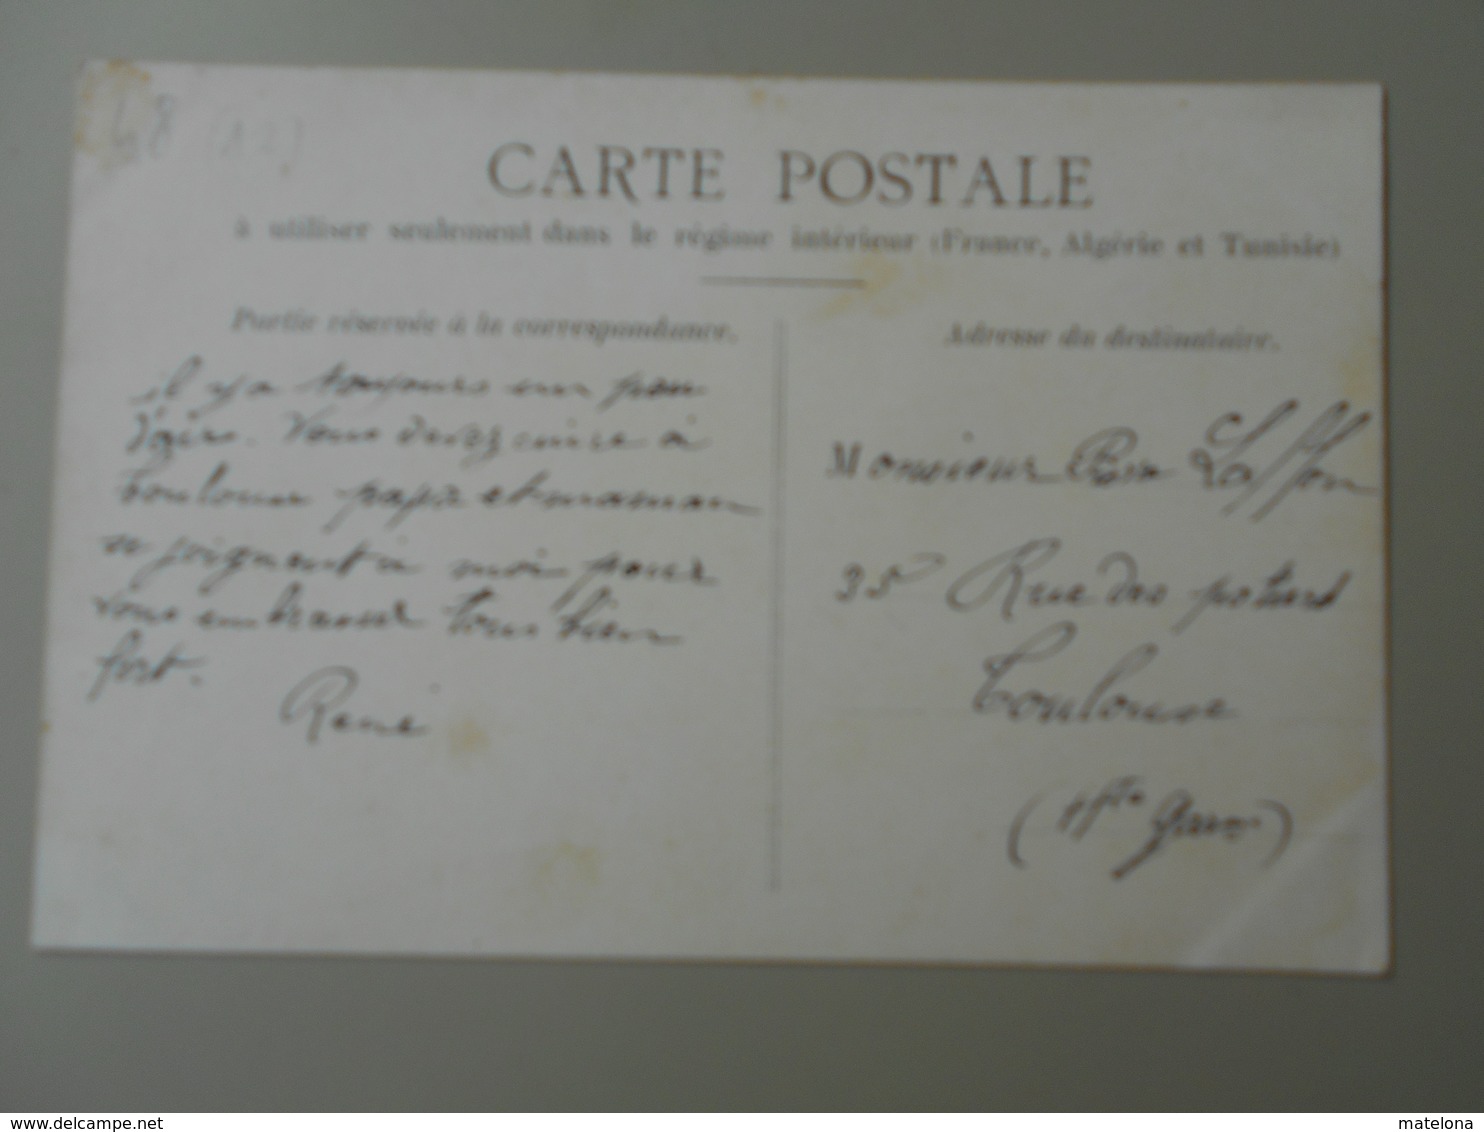 48 (12)
CARTE POSTALE
à utiliser seulement dans le régime intérieur (France, Algérie et Tunisie)
Partie réservée à la correspondance.
il y a toujours un peu
d'air. Vous devez cuire à
Toulouse papa et maman
se joignent à moi pour
vous embrasser tous bien
fort.
René
Adresse du destinataire.
Monsieur Laffon
35 Rue des potiers
Toulouse
(Hte Garon)
www.delcampe.net
matelona